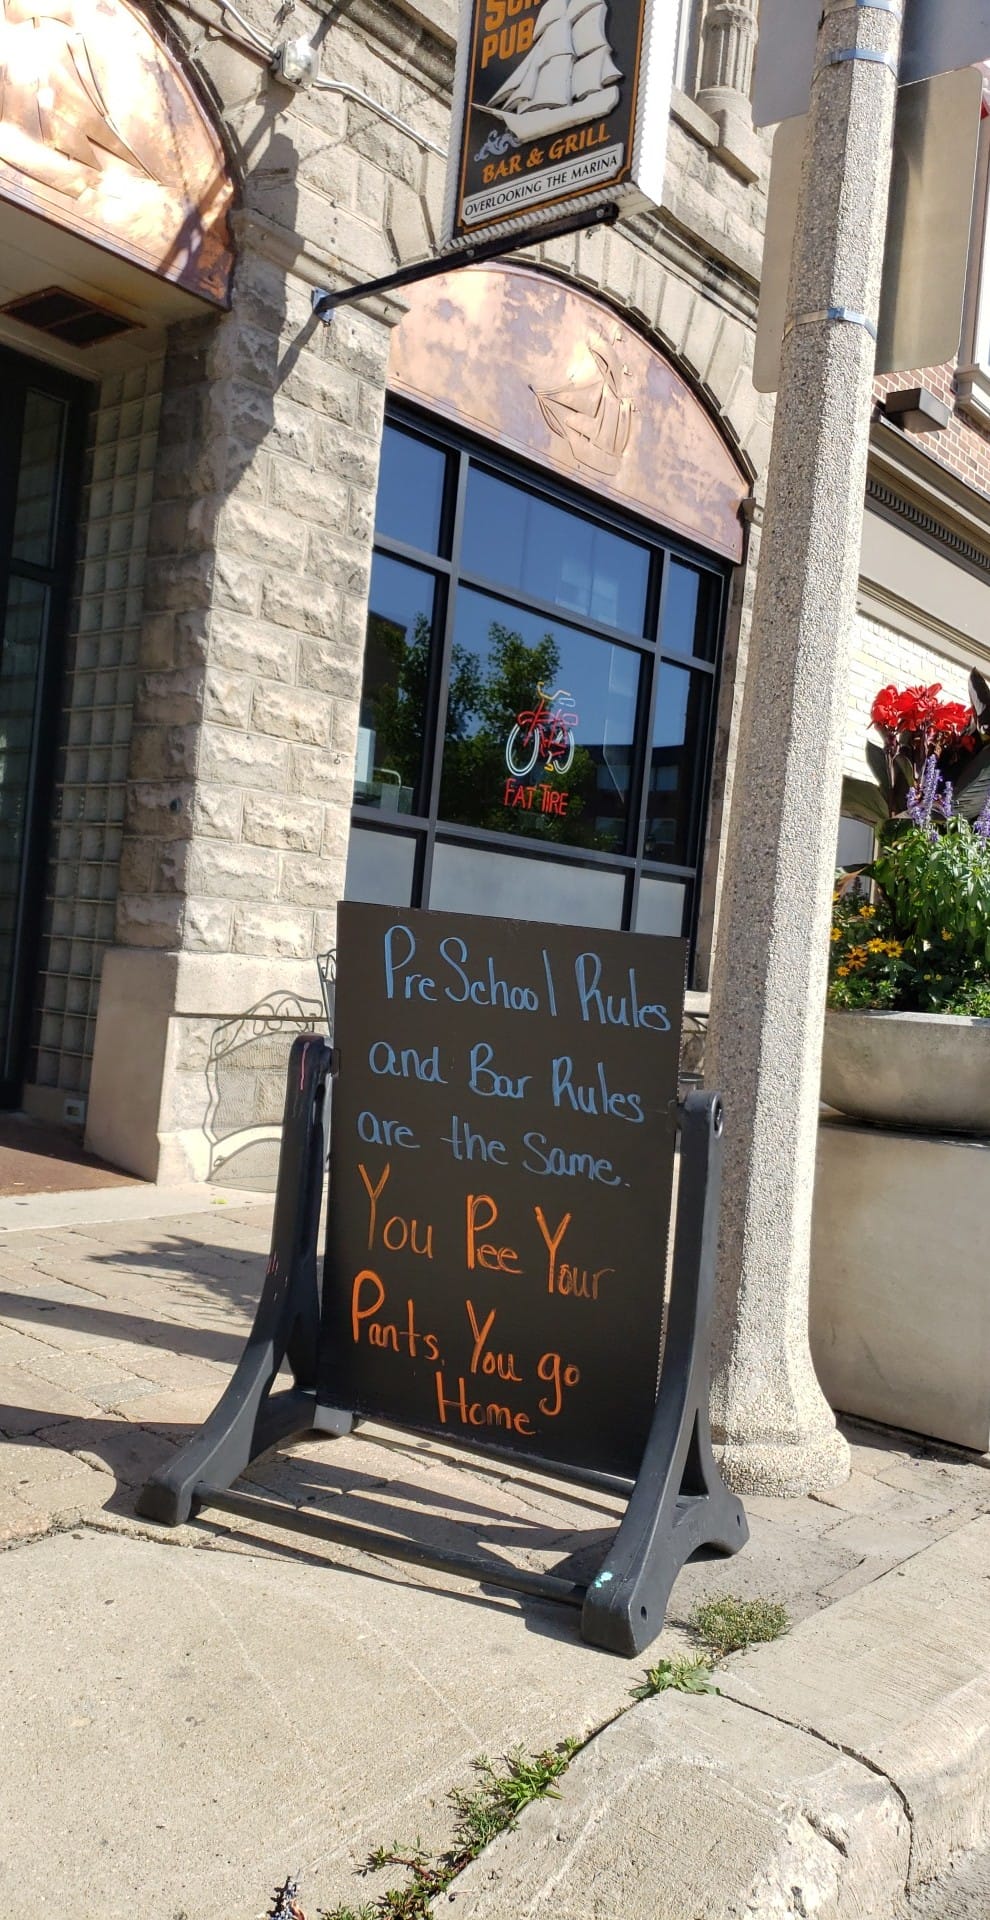 PUB
BAR & GRILL
OVERLOOKING THE MARINA
FAT TIRE
PreSchool Rules
and Bar Rules
are the Same.
You Pee Your
Pants, You go
Home